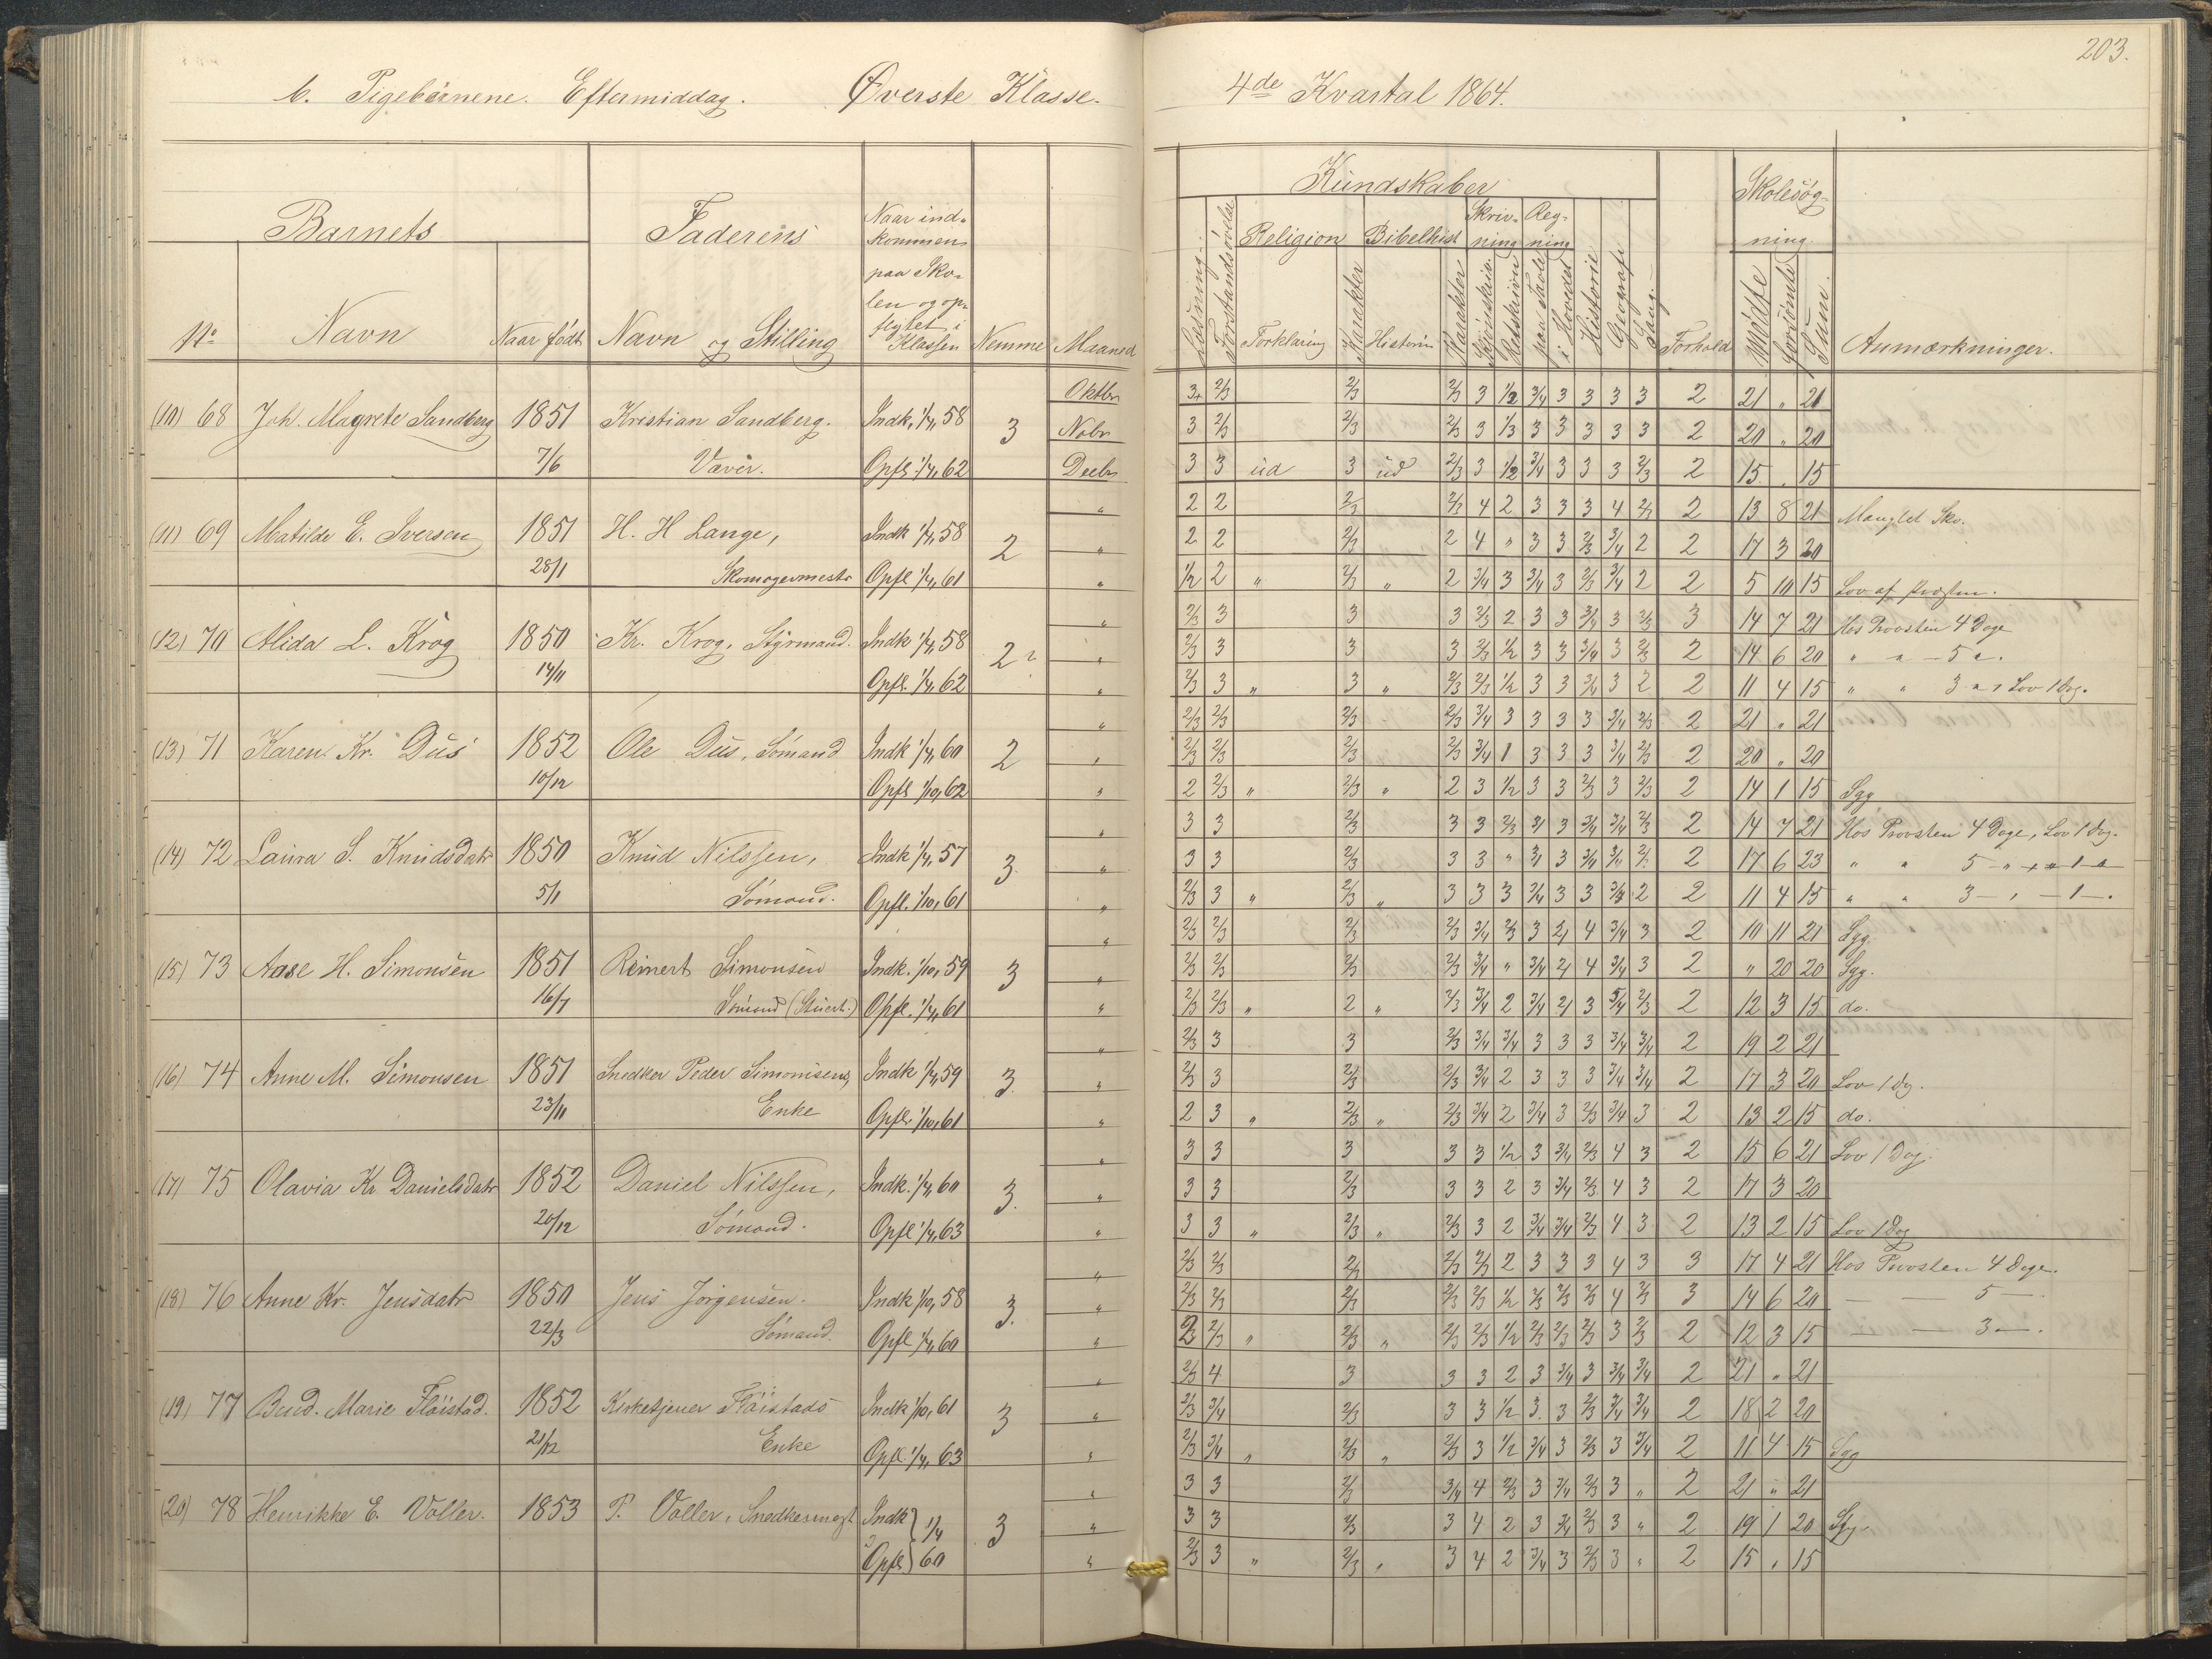 203.
b. Pigebörnene. Eftermiddag. Øverste Klasse. 4de Kvartal 1864.
Barnets Faderens Naar ind-
kommen
paa Sko-
len og op-
flyttet i
Klassen
No Navn Naar född Navn og Stilling Nemme Maaned
Kundskaber Skolesög-
ning.
Religion Bibelhist Skriv-
ning Reg-
ning
Læsning Forstandsövelse Forklaring Karakter Historie Karakter Skjönskriv. Retskrivn paa Tavle i Hovedet Historie Geografi Sang. Forhold Mödte Forsömte Sum. Anmærkninger.
(10) 68 Joh. Magrete Sandberg 1851 Kristian Sandberg. Indk. 1/4, 58 3 Oktbr
7/6 Væver. Opfl. 1/4, 62 Nobr
Decbr
3+ 2/3 2/3 2/3 3 1/2 3/4 3 3 3 3 2 21 " 21
3 2/3 2/3 2/3 3 1/3 3 3 3 3 3 2 20 " 20
3 3 ud 3 ud 2/3 3 1/2 3/4 3 3 3 2/3 2 15 " 15
(11) 69 Matilde E. Iversen 1851 H. H Lange, Indk 1/4, 58 2
28/1 Skomagermestr Opfl 1/4, 61
2 2 2/3 2/3 4 2 3 3 3 4 2/3 2 13 8 21 Manglet Sko.
2 2 2/3 2 4 " 3 3 2/3 3/4 2 2 17 3 20
1/2 2 " 2/3 " 2 3/4 3 3/4 3 2/3 3/4 2 2 5 10 15 Lov af Præsten.
(12) 70 Alida L. Krog 1850 Kr. Krog, Styrmand. Indk 1/4, 58 2
14/11 Opfl. 1/4, 62
2/3 3 3 3 2/3 2 3 3 3/4 3 2/3 3 14 7 21 Hos Provsten 4 Dage
2/3 3 3 3 2/3 1/2 3 3 3/4 3 2/3 2 14 6 20 " " - 5 ".
2/3 3 " 3 " 2/3 2/3 1/2 3 3 3/4 3 2 2 11 4 15 " " 3 " Lov 1 Dag.
(13) 71 Karen Kr. Dus 1852 Ole Dus, Sömand Indk 1/4, 60 2
10/12 Opfl 1/10, 62
2/3 2/3 2/3 2/3 3/4 3 3 3 3 3/4 2/3 2 21 " 21
2/3 2/3 2/3 2/3 3/4 1 3 3 3 3/4 2/3 2 20 " 20
2 2/3 " 2/3 " 2 3 1/2 3 3 2/3 3 2/3 2 14 1 15 Syg
(14) 72 Laura S. Knudsdatr 1850 Knud Nilssen, Indk 1/4, 57 3
5/1 Sömand. Opfl. 1/10, 61
3 3 2/3 3 3 2/3 3/1 3 3/4 3/4 2/3 2 14 7 21 Hos Provsten 4 Dage, Lov 1 Dag.
3 3 2/3 3 3 " 3/1 3 3/4 3/4 2/3 2 17 6 23 " " 5 - " 1
2/3 3 " 2/3 " 3 3 3 3/4 3 3 3/4 2 2 11 4 15 " " 3 - " - 1 -.
(15) 73 Aase H. Simonsen 1851 Reinert Simonsen Indk. 1/10, 59 3
16/7 Sömand (Stuert.) Opfl. 1/4, 61
2/3 2/3 2/3 2/3 3/4 2/3 3 4 3/4 3 2 10 11 21 Syg.
2/3 2/3 2/3 2/3 3/4 " 3/4 4 3/4 3 2 " 20 20 Syg.
2/3 2/3 " 2 " 2/3 3/4 2 3/4 3 3/4 2/3 2 12 3 15 do.
(16) 74 Anne M. Simonsen 1851 Snedker Peder Simonsens, Indk 1/4, 59 3.
23/11 Enke Opfl. 1/10, 61
2/3 3 3 2/3 3/4 3/4 3 3 3 3/4 3/4 2 19 2 21
2/3 3 2/3 2/3 3/4 2 3 3 3 3/4 3/4 2 17 3 20 Lov 1 Dg.
2 3 " 2/3 " 2/3 3/4 2 3/4 3 2/3 3/4 3 2 13 2 15 do.
(17) 75 Olavia Kr Danielsdatr 1852 Daniel Nilssen, Indk. 1/4, 60 3.
20/12 Sömand. Opfl 1/4, 63
3 3 3 3 3 1/2 3 3/4 2/3 4 3 2 15 6 21 Lov 1 Dag.
3 3 2/3 3 3 2 3 3/4 2/3 4 3 2 17 3 20
3 3 " 2/3 " 2/3 3 2 3/4 3/4 2/3 4 3 2 13 2 15 Lov 1 Dag
(18) 76 Anne Kr. Jensdatr 1850 Jens Jörgensen. Indk 1/10, 58 3.
22/3 Sömand. Opfl 1/4, 60
2/3 2/3 2/3 2/3 2/3 2 3 3 3 4 3 3 17 4 21 Hos Provsten 4 Dage.
2/3 2/3 2/3 2/3 2/3 1/2 2/3 2/3 2/3 4 2/3 3 14 6 20 — — 5 —
2/3 " 2/3 " 2/3 2/3 1/2 2/3 2/3 2/3 3 2/3 2 12 3 15 — — 3 —.
(19) 77 Bend. Marie Flöistad. 1852 Kirketjener Flöistads Indk 1/10, 61 3
21/12 Enke Opfl. 1/4, 63
2/3 4 3 3 3 2 3 3/4 3 3/4 3/4 2 21 " 21
2/3 3/4 2/3 3 3 1/2 3. 3 2/3 3/4 3/4 2 18 2 20
2/3 3/4 " 2/3 " 2/3 3 1/2 3/4 3 2/3 3 3/4 2 11 4 15 Syg
(20) 78 Henrikke E. Voller. 1853 T. Voller, Snedkermest Indk } 1/4 3
Opfl. } 60
3 3 2/3 3/4 4 2/3 3 3/4 2/3 3 " 2 21 " 21
3 3 2/3 3 4 2 3 3/4 2/3 3 " 2 19 1 20 Syg.
2/3 3 " 2/3 " 3 4 2 3/4 3 2/3 3 " 2 15 " 15